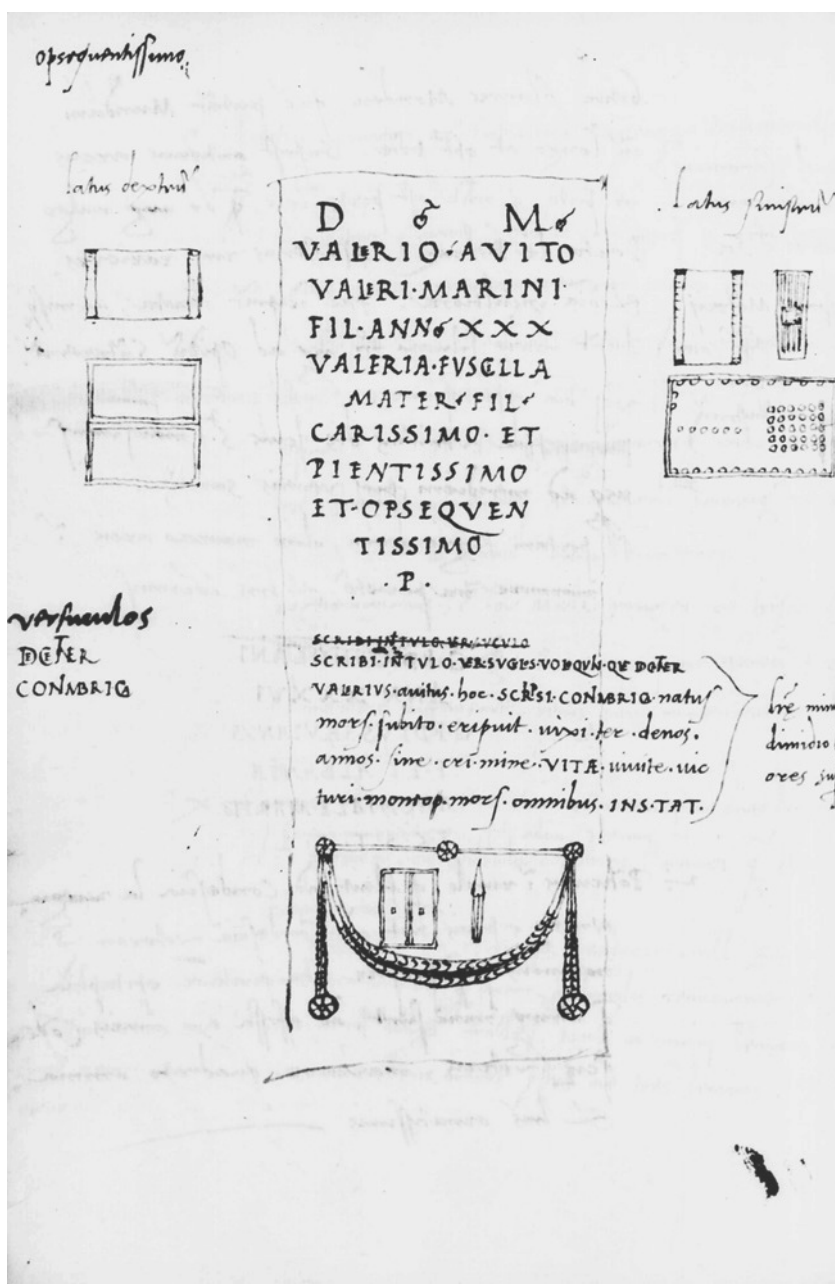 opsequentissimo
latus dextrũ
latus sinistrũ
D M
VALERIO AVITO
VALERI·MARINI·
FIL·ANN XXX
VALERIA·FVSCILLA
MATER FIL
CARISSIMO·ET
PIENTISSIMO
ET·OPSEQVEN
TISSIMO
·P·
versuculos
DECETER
CONMBRIG
SCRIBI·INTVLO·VERSVCVLO
SCRIBI·INTVLO·VERSVGLS·VOEQVN·QVE DECETER
VALERIVS·avitus·hoc·SCRIPSI·CONMBRIG·natus
mors·subito·eripuit·vixi·ter·denos·
annos·sine·cri·mine·VITÆ·vivite·vic
turi·moneo·mors·omnibus·INS·TAT·
lrẽ
dimidio
ores